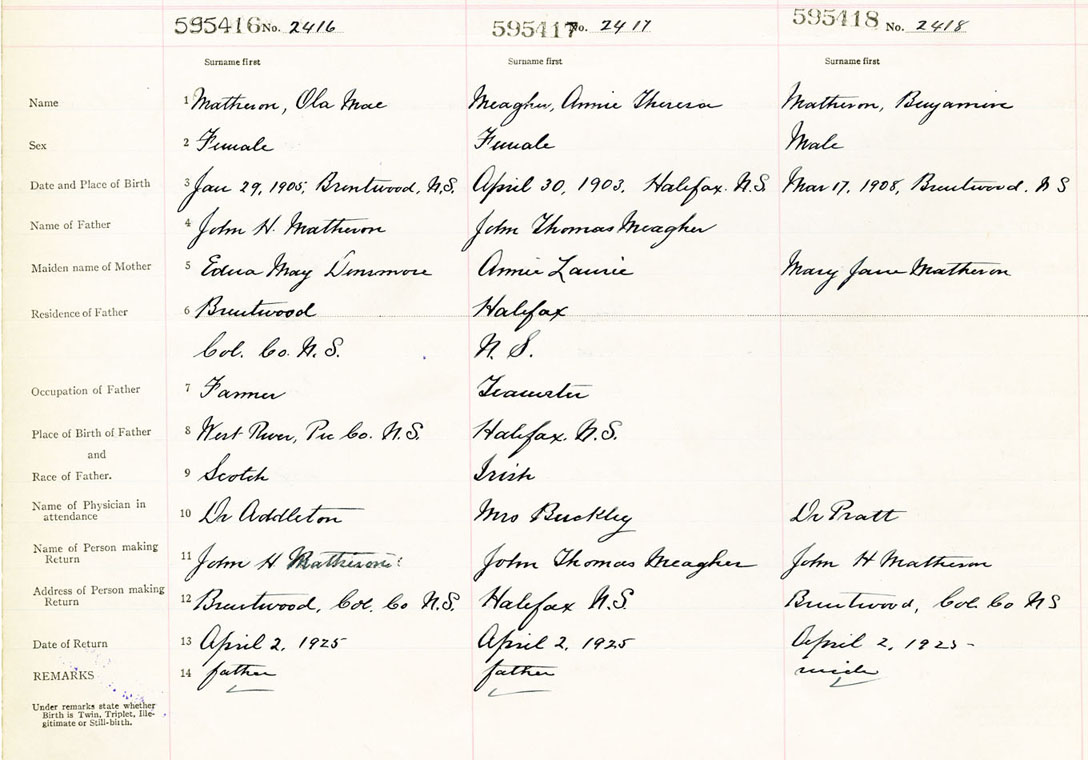 595416 No. 2416 595417 No. 2417 595418 No. 2418
Surname first Surname first Surname first
Name 1 Matheson, Ola Mae Meagher, Annie Theresa Matheson, Benjamin
Sex 2 Female Female Male
Date and Place of Birth 3 Jan 29, 1905, Brentwood, N.S. April 30, 1903. Halifax. N.S. Mar 17, 1908, Brentwood. N S
Name of Father 4 John H. Matheson John Thomas Meagher
Maiden name of Mother 5 Edna May Dinsmore Annie Laurie Mary Jane Matheson
Residence of Father 6 Brentwood Halifax
Col. Co. N.S. N. S.
Occupation of Father 7 Farmer Teamster
Place of Birth of Father 8 West River, Pic Co. N.S. Halifax. N.S.
and
Race of Father. 9 Scotch Irish
Name of Physician in
attendance 10 Dr Addleton Mrs Buckley Dr Pratt
Name of Person making
Return 11 John H Matheson John Thomas Meagher John H Matheson
Address of Person making
Return 12 Brentwood, Col. Co N.S. Halifax N.S. Brentwood, Col. Co N S
Date of Return 13 April 2, 1925 April 2, 1925 April 2, 1925-
REMARKS 14 father father uncle
Under remarks state whether
Birth is Twin, Triplet, Ille-
gitimate or Still-birth.